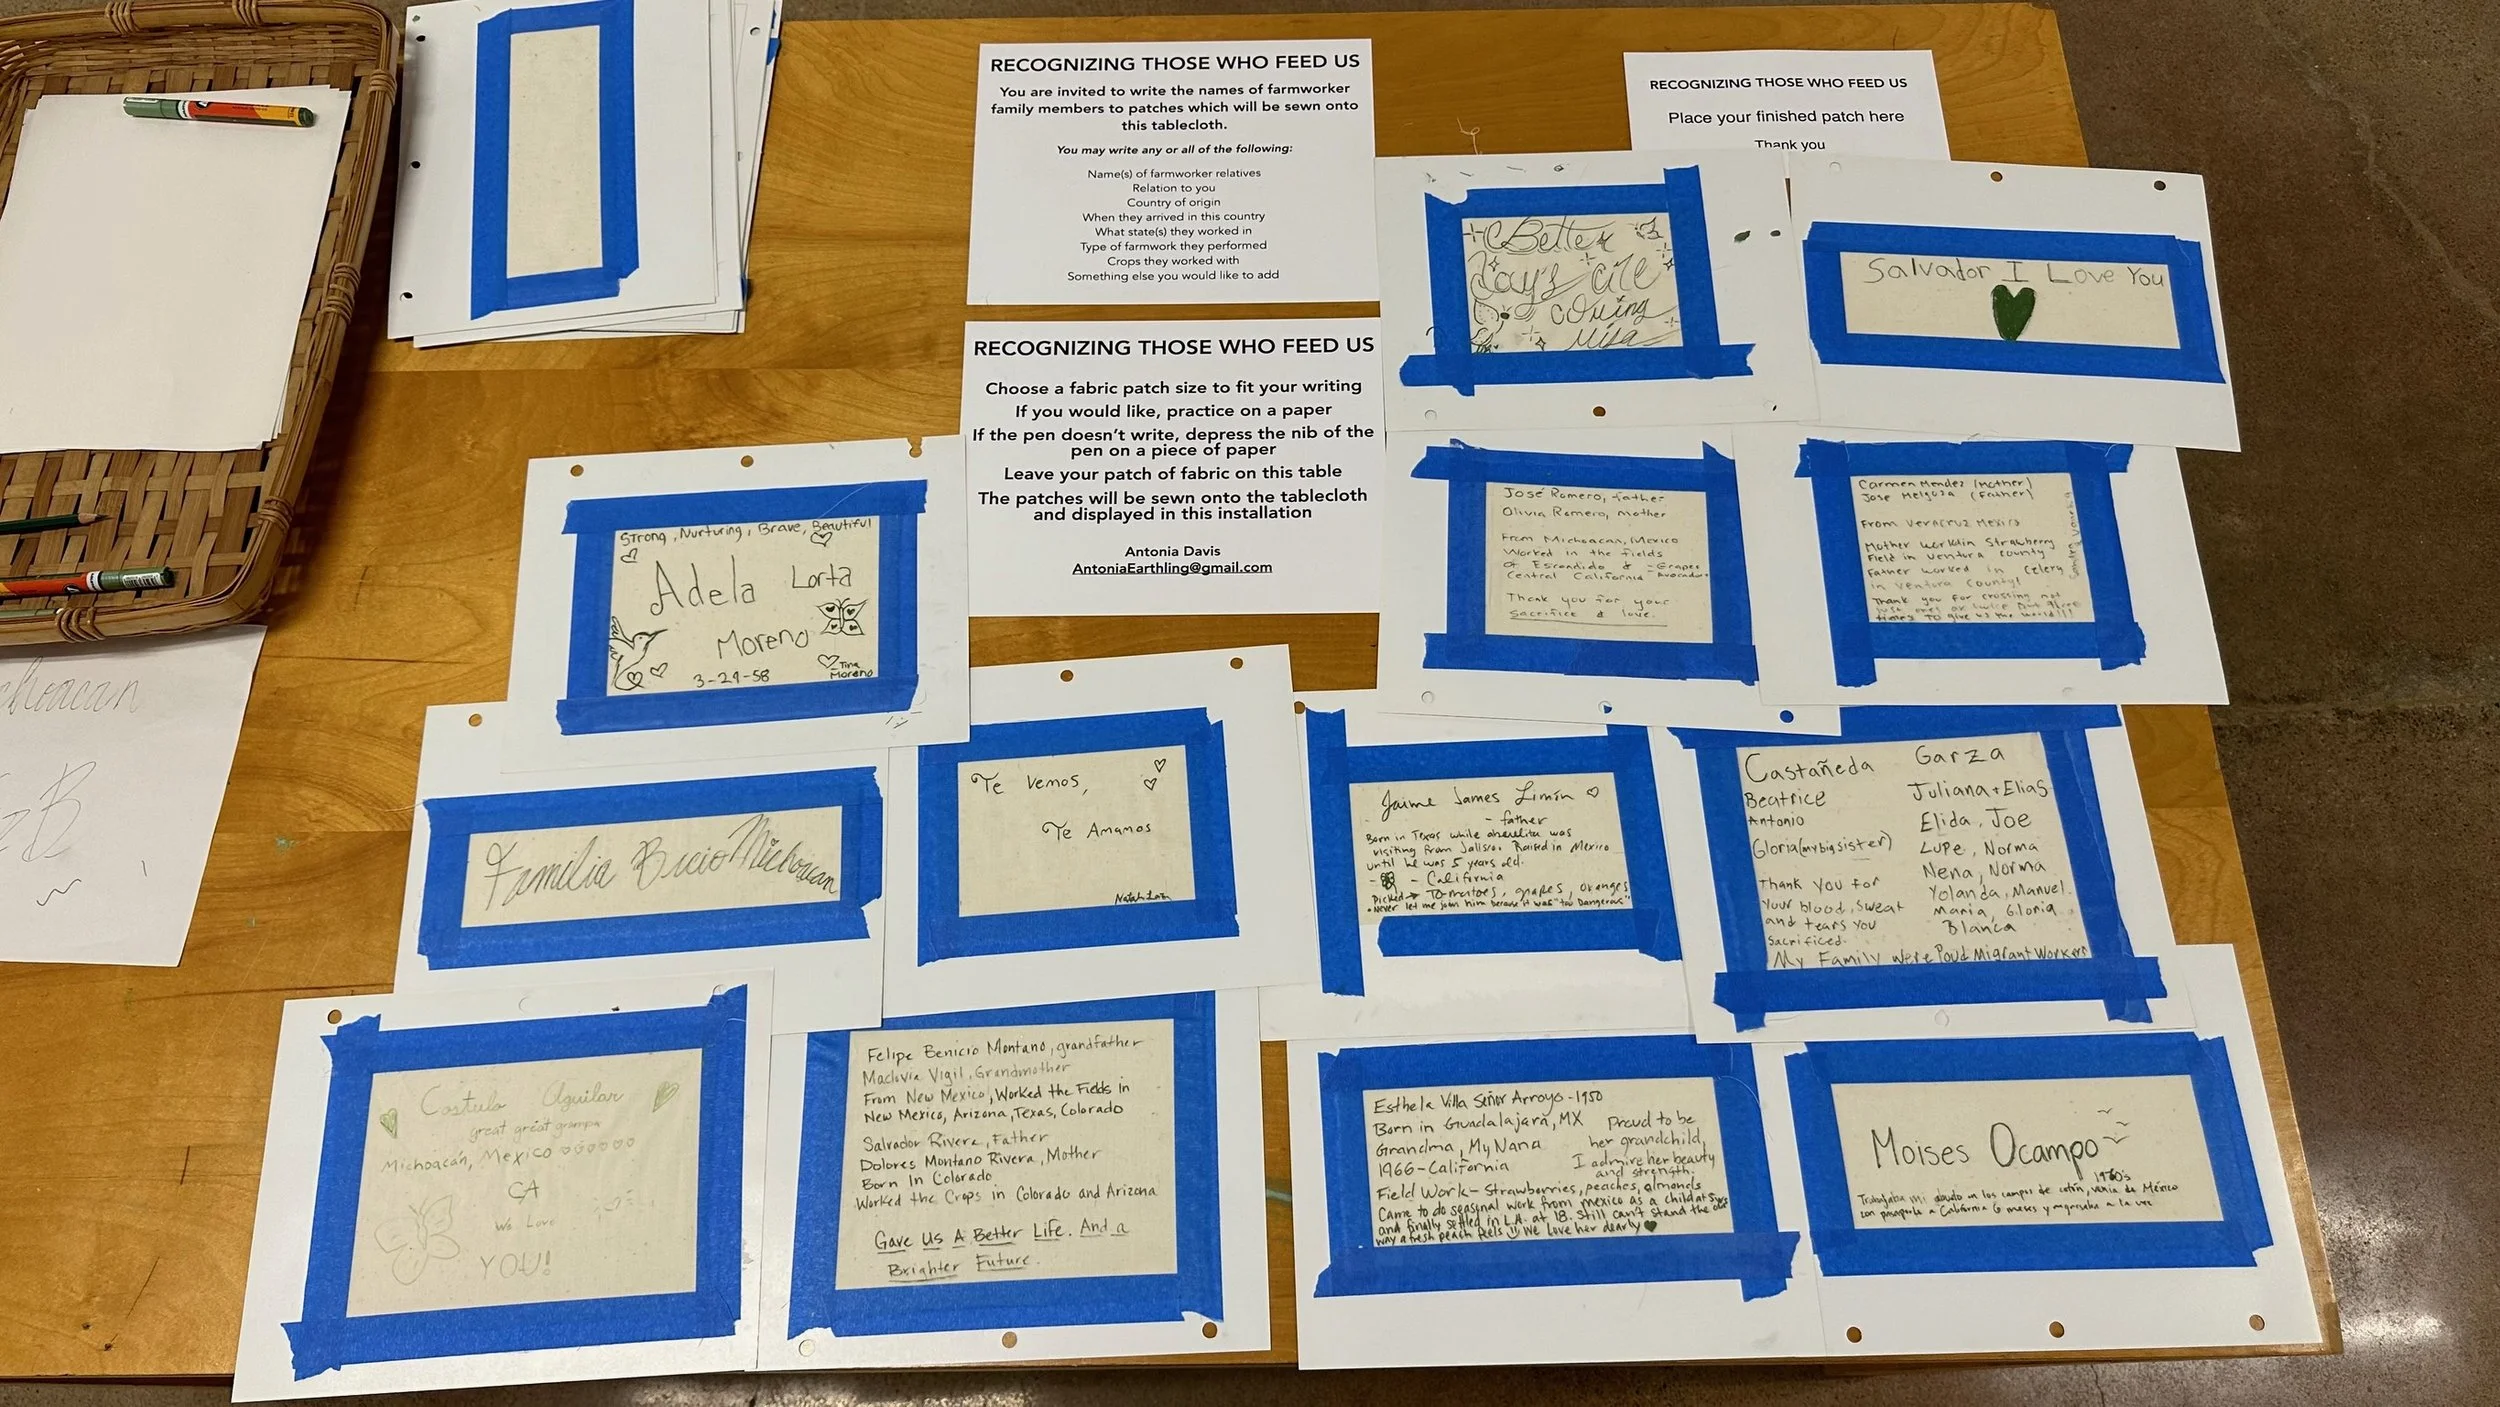 RECOGNIZING THOSE WHO FEED US
You are invited to write the names of farmworker
family members to patches which will be sewn onto
this tablecloth.
You may write any or all of the following:
Name(s) of farmworker relatives
Relation to you
Country of origin
When they arrived in this country
What state(s) they worked in
Type of farmwork they performed
Crops they worked with
Something else you would like to add
RECOGNIZING THOSE WHO FEED US
Place your finished patch here
Thank you
RECOGNIZING THOSE WHO FEED US
Choose a fabric patch size to fit your writing
If you would like, practice on a paper
If the pen doesn't write, depress the nib of the
pen on a piece of paper
Leave your patch of fabric on this table
The patches will be sewn onto the tablecloth
and displayed in this installation
Antonia Davis
AntoniaEarthling@gmail.com
Better
Day's are
coming
Misa
Salvador I Love You
Strong, Nurturing, Brave, Beautiful
Adela Lorta
Moreno
3-29-58
-Tina
Moreno
José Romero, father
Olivia Romero, mother
From Michoacan, Mexico
Worked in the fields
of Escondido & - Grapes
Central California - Avocados
Thank you for your
sacrifice & love.
Carmen Mendez (Mother)
Jose Melgoza (Father)
From Veracruz Mexico
Mother worked in Strawberry
Field in Ventura County
Father worked in Celery
in Ventura County!
Thank you for crossing not
just once or twice but three
times to give us the world!!!
Familia Bucio Michoacan
Te Vemos,
Te Amamos
Jaime James Limón
- father
Born in Texas while abuelita was
visiting from Jalisco. Raised in Mexico
until he was 5 years old.
- California
Picked → Tomatoes, grapes, oranges
• Never let me join him because it was "too Dangerous"
Castañeda
Beatrice
Antonio
Gloria (my big sister)
Thank you for
your blood, sweat
and tears you
sacrificed.
Garza
Juliana + Elias
Elida, Joe
Lupe, Norma
Nena, Norma
Yolanda, Manuel
Maria, Gloria
Blanca
My Family were Poud Migrant Workers
Costulo Aguilar
great great grampa
Michoacán, Mexico
CA
We Love
YOU!
Felipe Benicio Montano, grandfather
Maclovia Vigil, Grandmother
From New Mexico, Worked the Fields in
New Mexico, Arizona, Texas, Colorado
Salvador Rivera, Father
Dolores Montano Rivera, Mother
Born In Colorado
Worked the Crops in Colorado and Arizona
Gave Us A Better Life. And a
Brighter Future.
Esthela Villa Señor Arroyo - 1950
Born in Guadalajara, MX
Grandma, My Nana
1966 - California
Proud to be
her grandchild,
I admire her beauty
and strength.
Field Work - Strawberries, peaches, almonds
Came to do seasonal work from mexico as a child at
and finally settled in L.A. at 18. Still can't stand the
way a fresh peach feels :) We love her dearly
Moises Ocampo
1960's
Trabajaba mi abuelo en los campos de , venia de México
con pasaporte a California 6 meses y regresaba a la vez